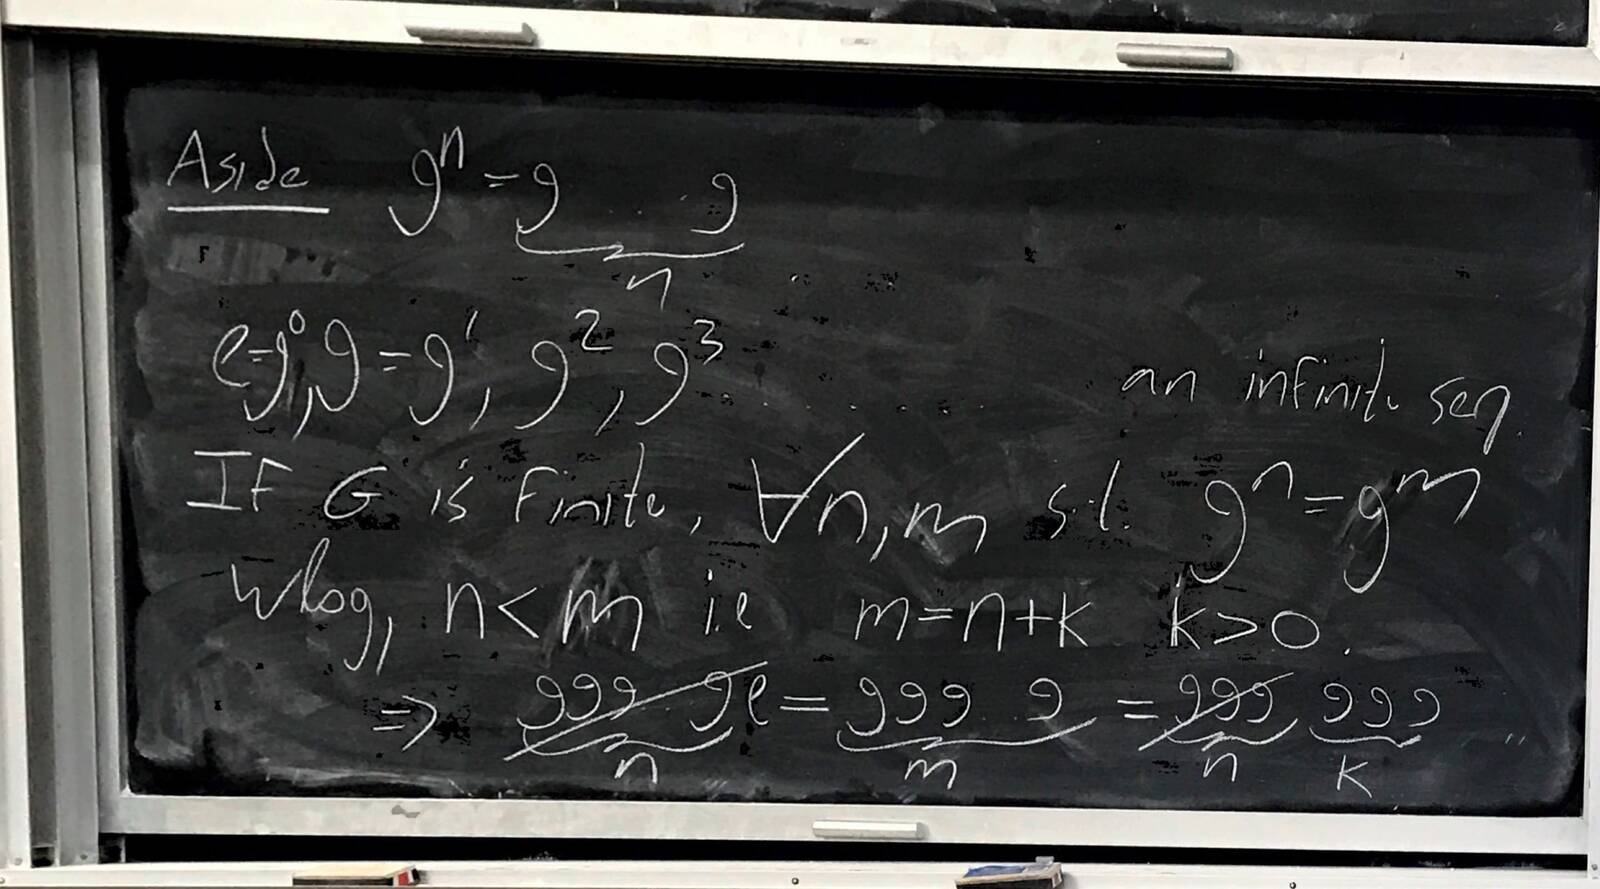 Aside gⁿ = g . . g
n
e=g⁰, g=g¹, g², g³ . . . . . an infinite seq.
If G is finite, ∀n,m s.t. gⁿ=gᵐ
Wlog, n<m i.e m=n+k k>0.
=> ggg . . ge = ggg . . g = ggg ggg
n m n k